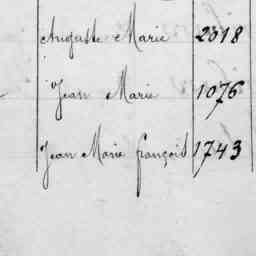 Auguste Marie 2018
Jean Marie 1076
Jean Marie françois 1743